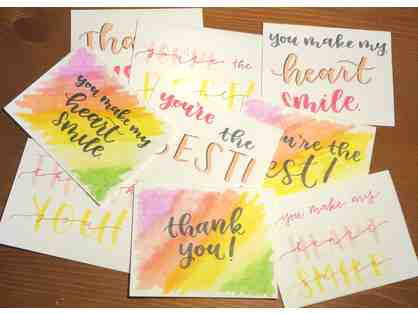 Tha
you're the
you make my
heart
smile
you make my
heart
smile
you're
the
BEST!
you're the
best!
YOU!
thank
you!
you make my
heart
SMILE